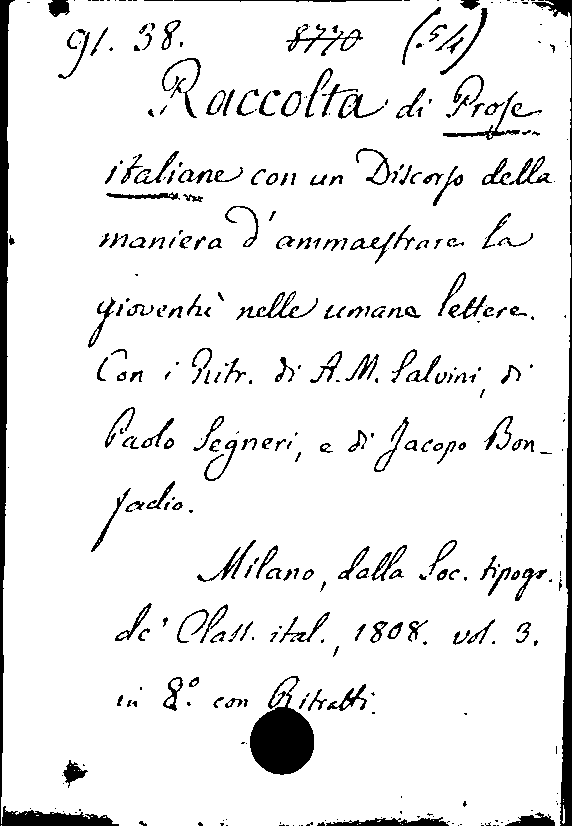 91. 38. 8770 (54)
Raccolta di Prose
italiane con un Discorso della
maniera d'ammaestrare la
gioventù nelle umane lettere.
Con i Ritr. di A. M. Salvini, di
Paolo Segneri, e di Jacopo Bon-
fadio.
Milano, dalla Soc. tipogr.
de' Class. ital., 1808. vol. 3.
in 8.° con Ritratti.